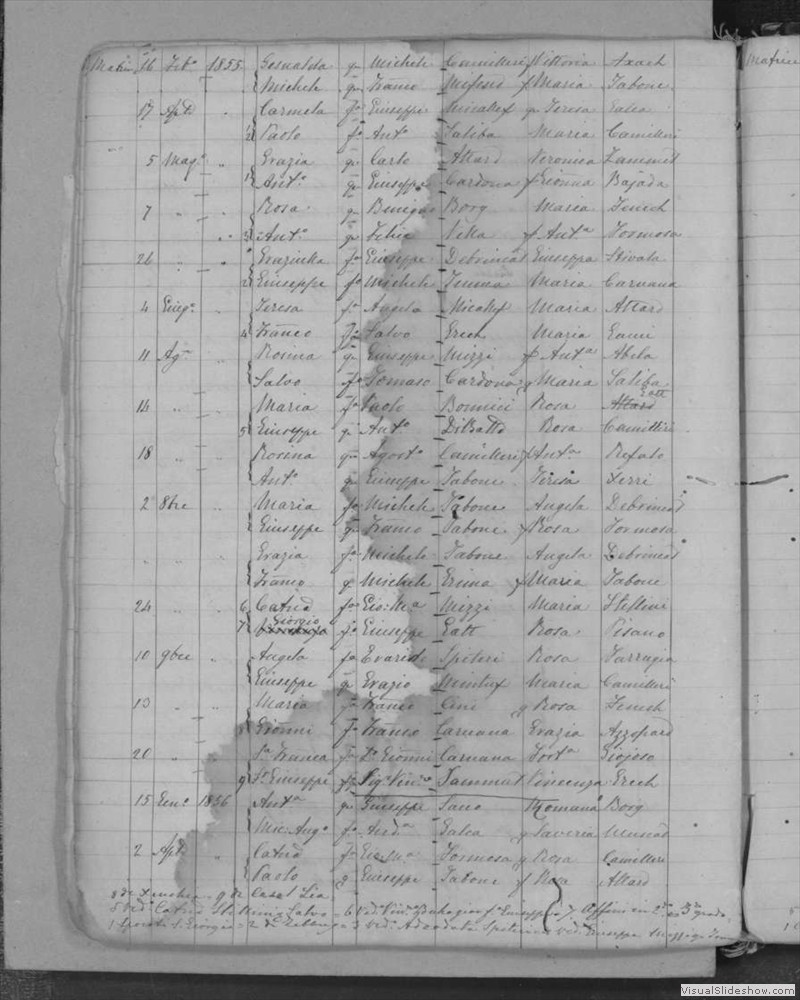 Matrim 16 Feb° 1855 Gesualda q Michele Camilleri Vittoria Axach
Michele q Franco Mifsud f Maria Tabone
17 Apr " Carmela f Giuseppe Micallef q Teresa Galea
2 Paolo f Ant° Saliba Maria Camilleri
5 Mag° " Grazia q Carlo Attard Veronica Zammit
1 Ant° q Giuseppe Cardona f Gionna Bajada
7 " " Rosa q Benigno Borg Maria Fenech
3 Ant° q Felice Vella f Anta Formosa
26 " " Graziulla f Giuseppe Debrincat Giuseppa Stivala
2 Giuseppe f Michele Maria Caruana
4 Giug° " Teresa f Angelo Micallef Maria Attard
4 Franco f Salvo Grech Maria Gauci
11 Ag° Rosina q Giuseppe Mizzi f Anta Abela
Salvo f Tomaso Cardona q Maria Saliba
14 " Maria f Paolo Bonnici Rosa Attard Gatt
5 Giuseppe q Ant° DeBatto Rosa Camilleri
18 " " Rosina q Agost° Camilleri f Anta Refalo
Ant° q Giuseppe Tabone Teresa Xerri
2 8bre " Maria f Michele Tabone Angela Debrincat
Giuseppe q Franco Tabone f Rosa Formosa
" " " Grazia f Michele Tabone Angela Debrincat
Franco q Michele Grima f Maria Tabone
24 " " 6 Catrid f Gio:Ma Mizzi Maria Stellini
7 Giorgio f Giuseppe Gatt Rosa Pisano
10 9bre " Angela f Evaristo Spiteri Rosa Farrugia
Giuseppe q Grazio Mintuf Maria Camilleri
13 " " Maria f Franco Cini q Rosa Fenech
8 Gionni f Franco Caruana Grazia Azzopardi
20 " Sa Franca f Sr Gionni Caruana Forta Giojoso
9 Sr Giuseppe f Sigr Vinco Tammut Vincenza Grech
15 Gen° 1856 Anta q Giuseppe Sano Romana Borg
Mic:Ang° f And° Galea q Saveria Muscat
2 Apr " Catrid f Gio:Ma Formosa q Rosa Camilleri
Paolo q Giuseppe Tabone f Rosa Attard
8 de Xeuchia 9 de Casal Lia
5 ved° Catrid Stellini Salvo = 6 ved° Vin° f° Giuseppe = 7 Affini in 2° e 3° grado
1 S. Giorgio = 2 de Zebbug = 3 ved° Adeodata Spiteri = 4 ved° Giuseppe Mizzi q
Matrim
VisualSlideshow.com